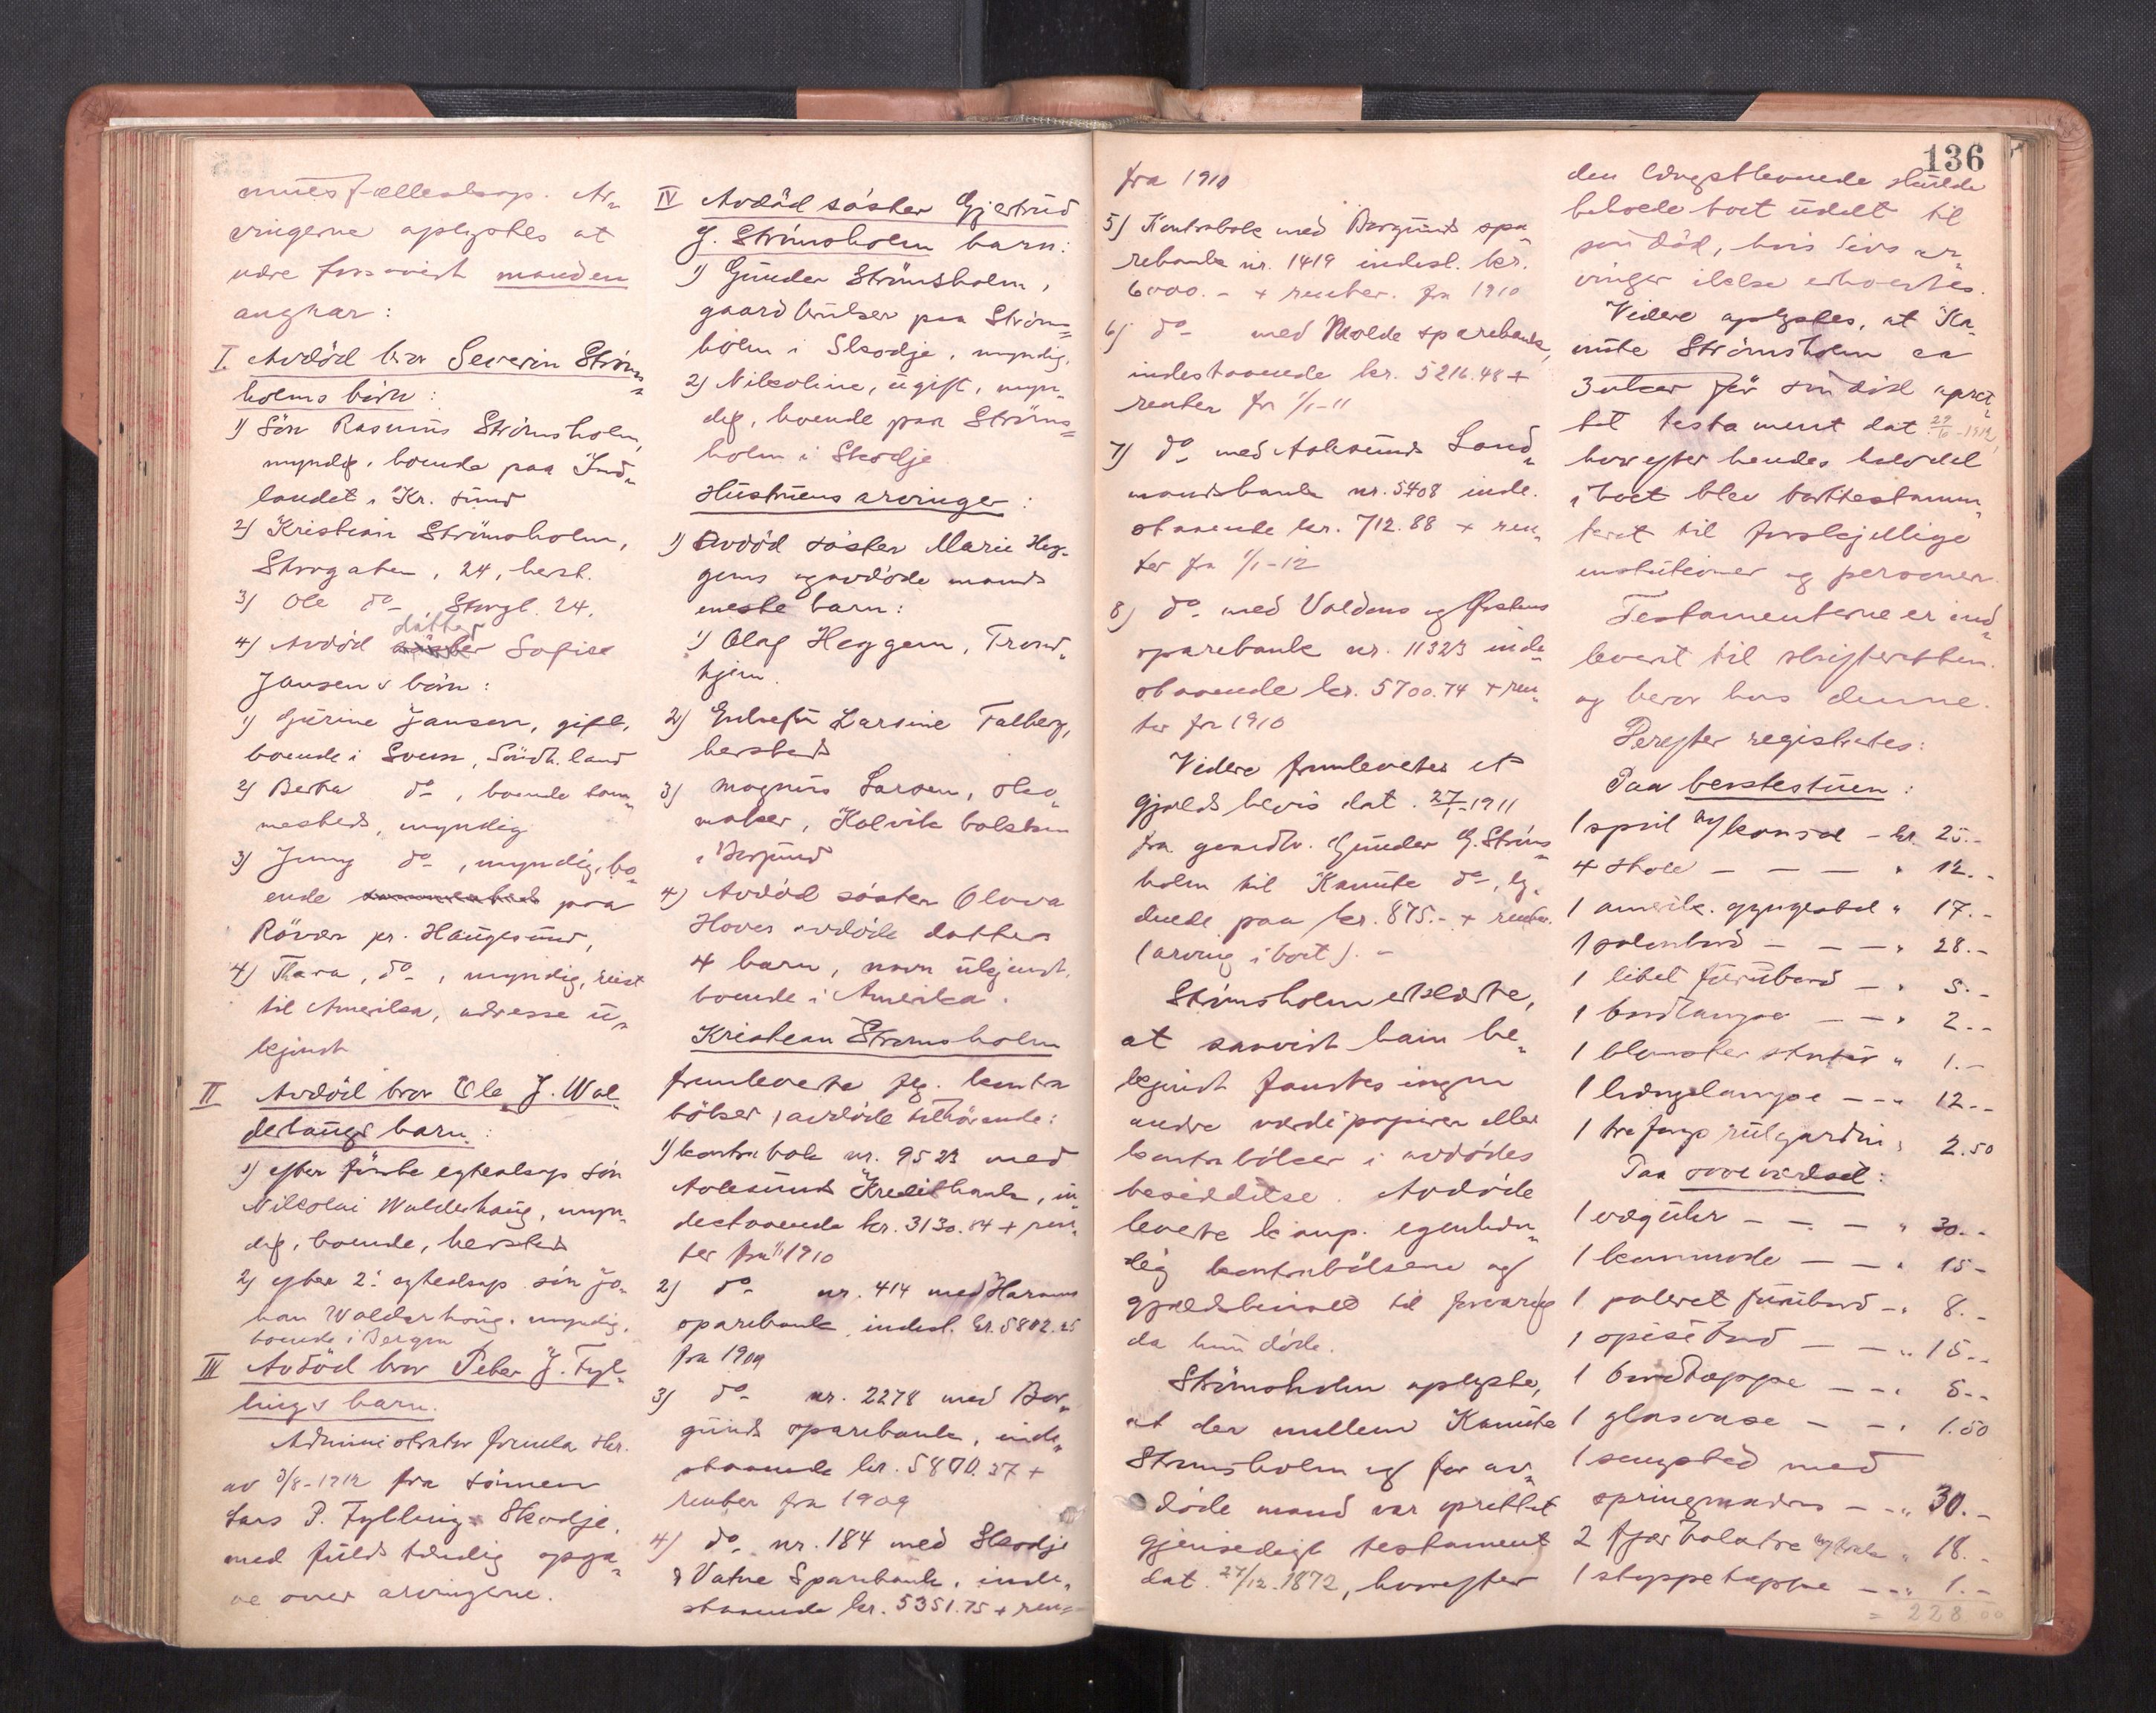 mues fælleskap. Ar„
vingerne oplystes at
være forsaavidt manden
angaar:
I. Avdöd bror Severin Ström„
holms börn:
1) Sön Rasmus Strömsholm,
myndig, boende paa Ind„
landet, Kr. sund
2) Kristian Strömsholm,
Storgaten, 24, herst.
3) Ole do, Storgt. 24.
4) Avdöd datter Sofie
Jansens börn:
1) Gurine Jansen, gift,
boende i Sveen, Söndh. land
2) Berta do, boende sam„
mesteds, myndig
3) Jenny do, myndig, bo„
ende sammesteds paa
Rövær pr. Haugesund,
4) Thara, do, myndig, reist
til Amerika, adresse u„
kjendt
II Avdöd bror Ole J. Wal„
derhaugs barn:
1) efter förste egteskap sön
Nikolai Walderhaug, myn„
dig, boende, hersteds
2) efter 2. egteskap sön Jo„
han Walderhaug, myndig,
boende i Bergen
III Avdöd bror Peter J. Fyl„
lings barn.
Administrator fremla skr.
av 3/8-1912 fra sönnen
Lars P. Fylling, Skodje,
med fuldstændig opga„
ve over arvingerne.
IV Avdöd söster Gjertrud
J. Strömsholm barn:
1) Gunder Strömsholm,
gaardbruker paa Ströms„
holm i Skodje, myndig.
2) Nikoline, ugift, myn„
dig, boende paa Ströms„
holm i Skodje
Hustruens arvinger:
1) Avdöd söster Marie Heg„
gems og avdöde mands
eneste barn:
1) Olaf Heggem, Trond„
hjem.
2) Enkefru Larsine Falberg,
hersteds
3) Magnus Larsen, sko„
maker, Kalvik bakken
i Borgund
4) Avdöd söster Olava
Hoves avdöde datters
4 barn, navn ukjendt,
boende i Amerika.
Kristian Strömsholm
fremleverte flg. kontra
böker, avdöde tilhörende:
1) kontrabok nr. 9523 med
Aalesunds Kreditbank, in„
destaaende kr. 3130.84 + ren„
ter fra 1/1 1910
2) do nr. 414 med Harams
sparebank, indest. kr. 5802.25
fra 1909
3) do nr. 2278 med Bor„
gunds sparebank, inde„
staaende kr. 5800.37 +
renter fra 1909
4) do nr. 184 med Skodje
& Vatne Sparebank, inde„
staaende kr. 5351.75 + ren„
136
fra 1910
5) Kontrabok med Borgunds spa„
rebank nr. 1419 indest. kr.
6000.- + renter. fra 1910
6) do med Molde sparebank,
indestaaende kr. 5216.48 +
renter fr 1/1-11
7) do med Aalesunds Land„
mandsbank nr. 5408 inde„
staaende kr. 712.88 + ren„
ter fra 1/1-12
8) do med Voldens og Ørstens
sparebank nr. 11323 inde„
staaende kr. 5700.74 + ren„
ter fra 1910
Videre fremlevertes et
gjældsbevis dat. 27/ -1911
fra gaardbr. Gunder G. Ströms„
holm til Kanute do, ly„
dende paa kr. 875.- + renter.
(arving i boet). -
Strömsholm erklærte,
at saavidt ham be„
kjendt fandtes ingen
andre værdipapirer eller
kontraböker i avdödes
besiddelse. Avdöde
leverte komp. egenhæn„
dig kontrabökerne og
gjældsbeviset til forvaring
da hun döde.
Strömsholm oplyste,
at der mellem Kanute
Strömsholm og før av„
döde mand var oprettet
gjensidigt testament
dat. 27/12-1872, hvorefter
den længstlevende skulde
beholde boet udelt til
sin död, hvis livsar„
vinger ikke erhvertes.
Videre oplystes, at Ka„
nute Strömsholm ca
3 uker för sin död opret„
tet testament dat 29/6-1912,
hvorefter hendes halvdel
i boet blev borttestamen„
teret til forskjellige
institutioner og personer.
Testamenterne er ind„
levert til skifteretten
og beror hos denne.
Derefter registrertes:
Paa berstestuen:
1 speil m/konsol - kr. 25.-
4 stole - - - " 12.-
1 amerik. gyngestol " 17.-
1 salonbord - - - " 28.-
1 litet furubord - " 5.-
1 bordlampe - - " 2.-
1 blomster statiör " 1.-
1 hængelampe - - - 12.-
1 tre fags rulgardin " 2.50
Paa soveværelset:
1 vægurhr - - - " 30.-
1 kommode - - " 15-
1 poleret furubord - " 8.-
1 spisebord - - " 15.-
1 bordtæppe - - " 5.-
1 glasvase - - " 1.50
1 sengested med
springmadras - - " 30.-
2 fjær bolstre " 18.-
1 stoppetæppe - - " 1.-
= 228 00